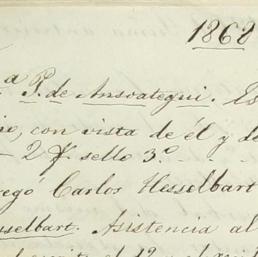 1868
a P. de Ansoategui. Es
io, con vista de él y de
- 2 f. sello 3º.
regó Carlos Hesselbart
sselbart. Asistencia al